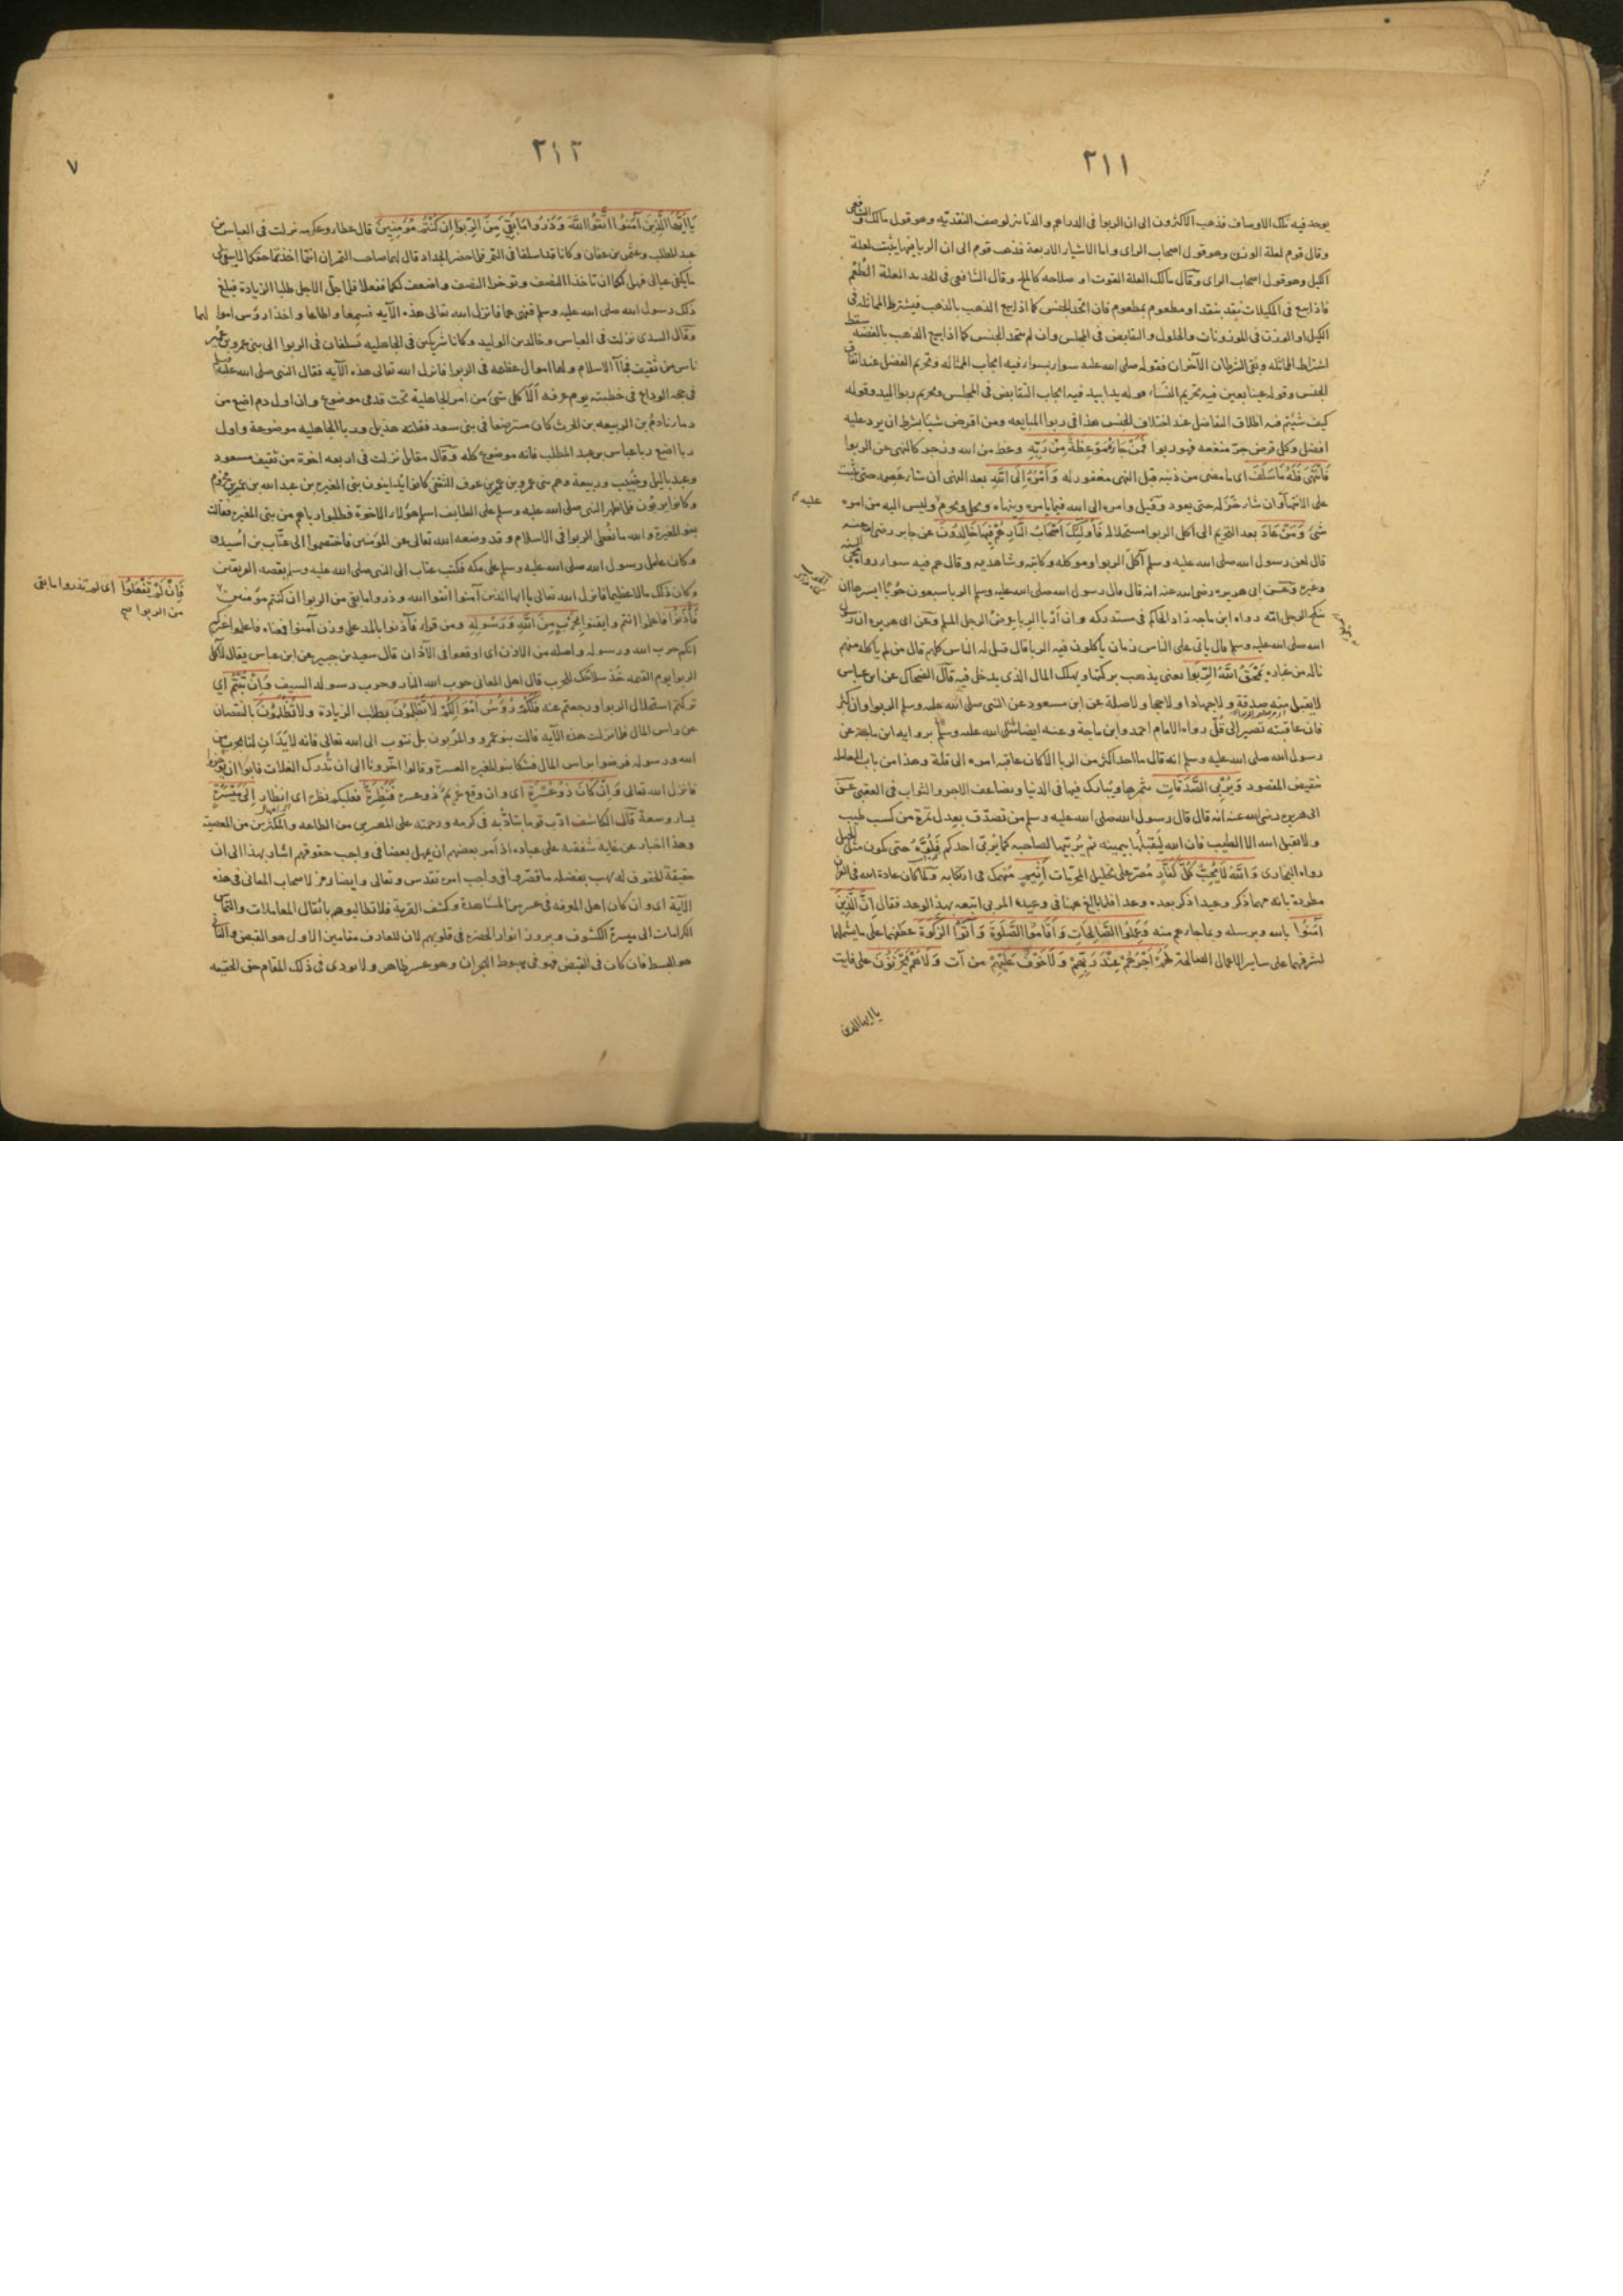 ٢١١
يوجد فيه تلك الاوصاف فذهب الاكثرون الى ان الربوا فى الدراهم والدنانير لوصف النقديه وهو قول مالك والشافعى
وقال قوم لعلة الوزن وهو قول اصحاب الراى واما الاشياء الاربعة فذهب قوم الى ان الربا فيها يثبت لعلة
الكيل وهو قول اصحاب الراى وقال مالك العلة القوت او صلاحه كالملح وقال الشافعى فى الجديد العلة الطُعْم
فاذا بيع فى المكيلات نقد بنقد او مطعوم بمطعوم فان اتحد الجنس كما اذا بيع الذهب بالذهب فيشترط المماثله فى
الكيل او الوزن فى الموزونات والحلول والتقابض فى المجلس وان لم يتحد الجنس كما اذا بيع الذهب بالفضة سقط
اشتراط المماثله وبقى الشرطان الآخران فقوله صلى الله عليه سواء بسواء فيه ايجاب المماثله وتحريم الفضل عند اتفاق
الجنس وقوله عينا بعين فيه تحريم النسَاء وقوله يدا بيد فيه ايجاب التقابض فى المجلس وتحريم ربوا اليد وقوله
كيف شئتم فيه اطلاق التفاضل عند اختلاف الجنس هذا فى ربوا المبايعه ومن اقرض شيئا بشرط ان يرد عليه
افضل وكل قرض جرّ منفعه فهو ربوا فَمَنْ جَاءَهُ مَوْعِظَةٌ مِنْ رَبِّهِ وعظ من الله وزجر كالنهى عن الربوا
فَانْتَهَى فَلَهُ مَا سَلَفَ اى ما مضى من ذنبه قبل النهى مغفور له وَأَمْرُهُ إِلَى اللَّهِ بعد النهى ان شاء عصمه حتى يثبت
على الانتهاء وان شاء خذله حتى يعود وقيل وامره الى الله فيما يامره وينهاه ويحل ويحرم وليس اليه من امره
عليه
شئ وَمَنْ عَادَ بعد التحريم الى اكل الربوا مستحلا له فَأُولَئِكَ أَصْحَابُ النَّارِ هُمْ فِيهَا خَالِدُونَ عن جابر رضى الله عنه
قال لعن رسول الله صلى الله عليه وسلم آكل الربوا وموكله وكاتبه وشاهديه وقال هم فيه سواء رواه
وغيره وعن ابى هريره رضى الله عنه انه قال قال رسول الله صلى الله عليه وسلم الربا سبعون حُوبًا ايسرها ان
ينكح الرجل امّه رواه ابن ماجه زاد الحاكم فى مستدركه وان اربا الربا عرض الرجل المسلم وعن ابى هريره ان رسول
الله صلى الله عليه وسلم قال ياتى على الناس زمان ياكلون فيه الربا قال قيل له الناس كلهم قال من لم ياكله منهم
ناله من غباره يَمْحَقُ اللَّهُ الرِّبَوا يعنى يذهب بركته ويهلك المال الذى يدخل فيه قال الضحاك عن ابن عباس
لا يقبل منه صدقة ولا جهادا ولا حجا ولا صلة عن ابن مسعود عن النبى صلى الله عليه وسلم الربوا وان كثر
فان عاقبته تصير الى قُلّ رواه الامام احمد وابن ماجة وعنه ايضا
رسول الله صلى الله عليه وسلم انه قال ما احد اكثر من الربا الا كان عاقبه امره الى قلة وهذا من باب المعامله
بنقيض المقصود وَيُرْبِى الصَّدَقَاتِ يثمرها ويبارك فيها فى الدنيا ويضاعف الاجر والثواب فى العقبى عن
ابى هريره رضى الله عنه انه قال قال رسول الله صلى الله عليه وسلم من تصدّق بعدل تمرة من كسب طيب
ولا يقبل الله الا الطيب فان الله يتقبلها بيمينه ثم يُربّيها لصاحبه كما يُربّى احدكم فَلُوَّهُ حتى تكون مثل الجبل
رواه البخارى وَاللَّهُ لَا يُحِبُّ كُلَّ كَفَّارٍ مُصرّ على تحليل المحرّمات أَثِيمٍ منهمك فى ارتكابه ولما كان عادة الله فى القرآن
مطردة بانه مهما ذكر وعيدا ذكر بعده وعدا فلما بالغ هاهنا فى وعيد المربى اتبعه بهذا الوعد فقال إِنَّ الَّذِينَ
آمَنُوا بالله وبرسله وبما جاءهم منه وَعَمِلُوا الصَّالِحَاتِ وَأَقَامُوا الصَّلَوةَ وَآتَوُا الزَّكَوةَ عطفهما على ما يشملهما
لشرفهما على سائر الاعمال الصالحة لَهُمْ أَجْرُهُمْ عِنْدَ رَبِّهِمْ وَلَا خَوْفٌ عَلَيْهِمْ من آت وَلَا هُمْ يَحْزَنُونَ على فايت
يا ايها الذين
٢١٢
٧
يَا أَيُّهَا الَّذِينَ آمَنُوا اتَّقُوا اللَّهَ وَذَرُوا مَا بَقِيَ مِنَ الرِّبَوا إِنْ كُنْتُمْ مُؤْمِنِينَ قال عطاء وعكرمه نزلت فى العباس بن
عبد المطلب وعثمن بن عفان وكانا قد اسلفا فى التمر فلما حضر الجداد قال لهما صاحب التمر ان انتما اخذتما حقكما لا يبقى لى
ما يكفى عيالى فهل لكما ان تاخذا النصف وتوخرا النصف واضعف لكما ففعلا فلما حلّ الاجل طلبا الزيادة فبلغ
ذلك رسول الله صلى الله عليه وسلم فنهى هما فانزل الله تعالى هذه الآيه فسمعا واطاعا واخذا رؤس اموالهما
وقال السدى نزلت فى العباس وخالد بن الوليد وكانا شريكين فى الجاهليه يُسلفان فى الربوا الى بنى عمرو بن عُمير
ناس من ثقيف فجآء الاسلام ولهما اموال عظيمه فى الربوا فانزل الله تعالى هذه الآيه فقال النبى صلى الله عليه وسلم
فى حجه الوداع فى خطبته يوم عرفه ألَا كل شئ من امر الجاهلية تحت قدمى موضوع وان اول دم اضع من
دمائنا دمُ بن الربيعه بن الحرث كان مسترضعا فى بنى سعد فقتله هذيل وربا الجاهليه موضوعة واول
ربا اضع ربا عباس بن عبد المطلب فانه موضوع كله وقال مقاتل نزلت فى اربعه اخوة من ثقيف مسعود
وعبد ياليل وحُبيب وربيعة وهم بنى عمرو بن عمير بن عوف الثقفى كانوا يُداينون بنى المغيره بن عبد الله بن عمير بن مخزوم
وكانوا يربُون فلما ظهر النبى صلى الله عليه وسلم على الطايف اسلم هؤلاء الاخوة فطلبوا رباهم من بنى المغيره فقالت
بنو المغيرة والله ما نُعطى الربوا فى الاسلام وقد وضعه الله تعالى عن المؤمنين فاختصموا الى عتّاب بن اُسيد
وكان عامل رسول الله صلى الله عليه وسلم على مكه فكتب عتاب الى النبى صلى الله عليه وسلم بقصه الفريقين
وكان ذلك مالا عظيما فانزل الله تعالى يا ايها الذين آمنوا اتقوا الله وذروا ما بقى من الربوا ان كنتم مؤمنين
فَإِنْ لَمْ تَفْعَلُوا اى لم تذروا ما بقى
من الربوا
فَأْذَنُوا فاعلموا انتم وايقنوا بِحَرْبٍ مِنَ اللَّهِ وَرَسُولِهِ ومن قراء فآذنوا بالمد على وزن آمنوا فمعناه فاعلموا غيركم
انكم حرب الله ورسوله واصله من الاذن اى اوقعوا فى الآذان قال سعيد بن جبير عن ابن عباس يقال لآكل
الربوا يوم القيمه خُذ سلاحك للحرب قال اهل المعانى حرب الله النار وحرب رسوله السيف وَإِنْ تُبْتُمْ اى
تركتم استحلال الربوا ورجعتم عنه فَلَكُمْ رُؤُسُ أَمْوَالِكُمْ لَا تَظْلِمُونَ بطلب الزيادة وَلَا تُظْلَمُونَ بالنقصان
عن راس المال فلما نزلت هذه الآيه قالت بنو عمرو والمربون بل نتوب الى الله تعالى فانه لا يَدَانِ لنا بحرب من
الله ورسوله فرضوا براس المال فشكا بنو المغيره العسرة وقالوا اخّرونا الى ان تُدرك الغلات فابوا ان يؤخروا
فانزل الله تعالى وَإِنْ كَانَ ذُو عُسْرَةٍ اى وان وقع غريمٌ ذو عسره فَنَظِرَةٌ فعليكم نظره اى انظار إِلَى مَيْسَرَةٍ
يسار وسعة قال الكاشف ادّب قوما بتادّبه فى كرمه ورحمته على المعسرين من الطاعه والمكثرين من المعصية
وهذا اخبار عن غاية شفقته على عباده اذ امر بعضهم ان يمهل بعضا فى واجب حقوقهم اشار بهذا الى ان
حقيقة الحقوق له يهب بفضله ما قصّروا فى واجب امره تقدس وتعالى وايضا رمز لاصحاب المعانى فى هذه
الآية اى وان كان اهل المعرفه فى عسر من المشاهدة وكشف القربة فلا تطالبوهم باثقال المعاملات والتماس
الكرامات الى ميسرة الكشوف وبروز انوار الحضره فى قلوبهم لان للعارف مقامين الاول هو القبض والثانى
هو البسط فان كان فى القبض فهو فى هبوط وهو عسر ظاهر ولا يودى فى ذلك المقام حق الحقيقه